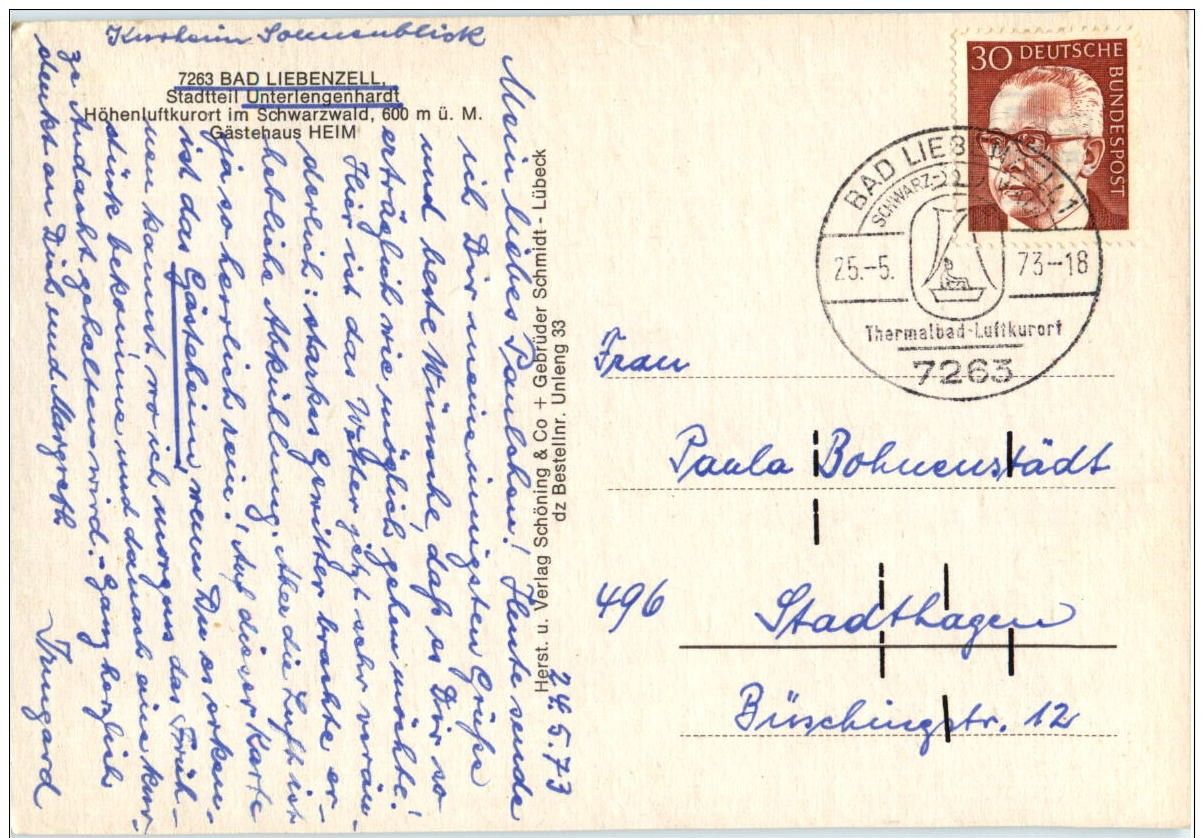 Kurheim Sonnenblick
7263 BAD LIEBENZELL,
Stadtteil Unterlengenhardt
Höhenluftkurort im Schwarzwald, 600 m ü. M.
Gästehaus HEIM
24.5.73
Mein liebes Paulchen! Heute sende
ich Dir meine innigsten Grüße
und beste Wünsche, daß es Dir so
erträglich wie möglich gehen möchte!
Hier ist das Wetter jetzt sehr verän-
derlich: starkes Gewitter brachte er-
hebliche Abkühlung. Aber die Luft ist
ja so herrlich rein! Auf dieser Karte
ist das Gästeheim, wenn Du es erken-
nen kannst wo ich morgens das Früh-
stück bekomme und danach eine kur-
ze Andacht gehalten wird. Ganz herzlich
denkt an Dich und Margreth
Irmgard
Herst. u. Verlag Schöning & Co + Gebrüder Schmidt - Lübeck
dz Bestellnr. Unleng 33
30 DEUTSCHE
BUNDESPOST
BAD LIEBENZELL 1
SCHWARZ-
25.-5.
73-18
Thermalbad-Luftkurort
7263
Frau
Paula Bohnenstädt
496 Stadthagen
Büschingstr. 12